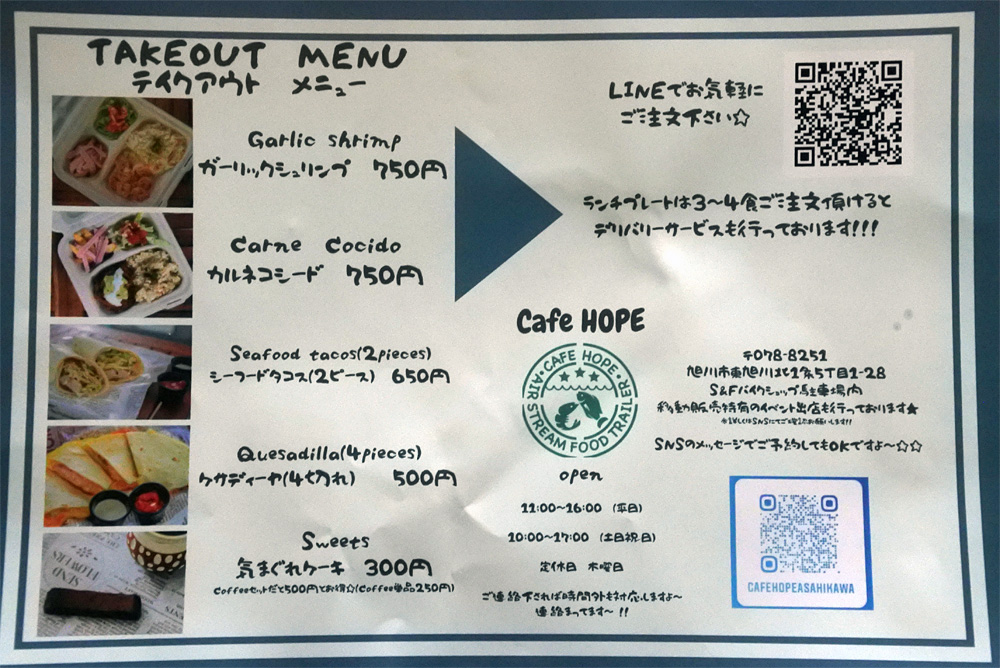 TAKEOUT MENU
テイクアウト メニュー
Garlic shrimp
ガーリックシュリンプ 750円
Carne Cocido
カルネコシード 750円
Seafood tacos(2pieces)
シーフードタコス(2ピース) 650円
Quesadilla(4pieces)
ケサディーヤ(4切れ) 500円
Sweets
気まぐれケーキ 300円
Coffeeセットだと500円とお得☆(Coffee単品250円)
LINEでお気軽に
ご注文下さい☆
ランチプレートは3〜4食ご注文頂けると
デリバリーサービスも行っております!!!
Cafe HOPE
CAFE HOPE
AIR STREAM FOOD TRAILER
open
11:00〜16:00 (平日)
10:00〜17:00 (土日祝日)
定休日 木曜日
ご連絡下されば時間外も対応しますよ〜
連絡まってます〜 !!
〒078-8251
旭川市東旭川北1条5丁目1-28
S&Fバイクショップ駐車場内
移動販売特有のイベント出店も行っております★
※詳しくはSNSにてご確認お願いします!!
SNSのメッセージでご予約してもOKですよ〜☆☆
CAFEHOPEASAHIKAWA